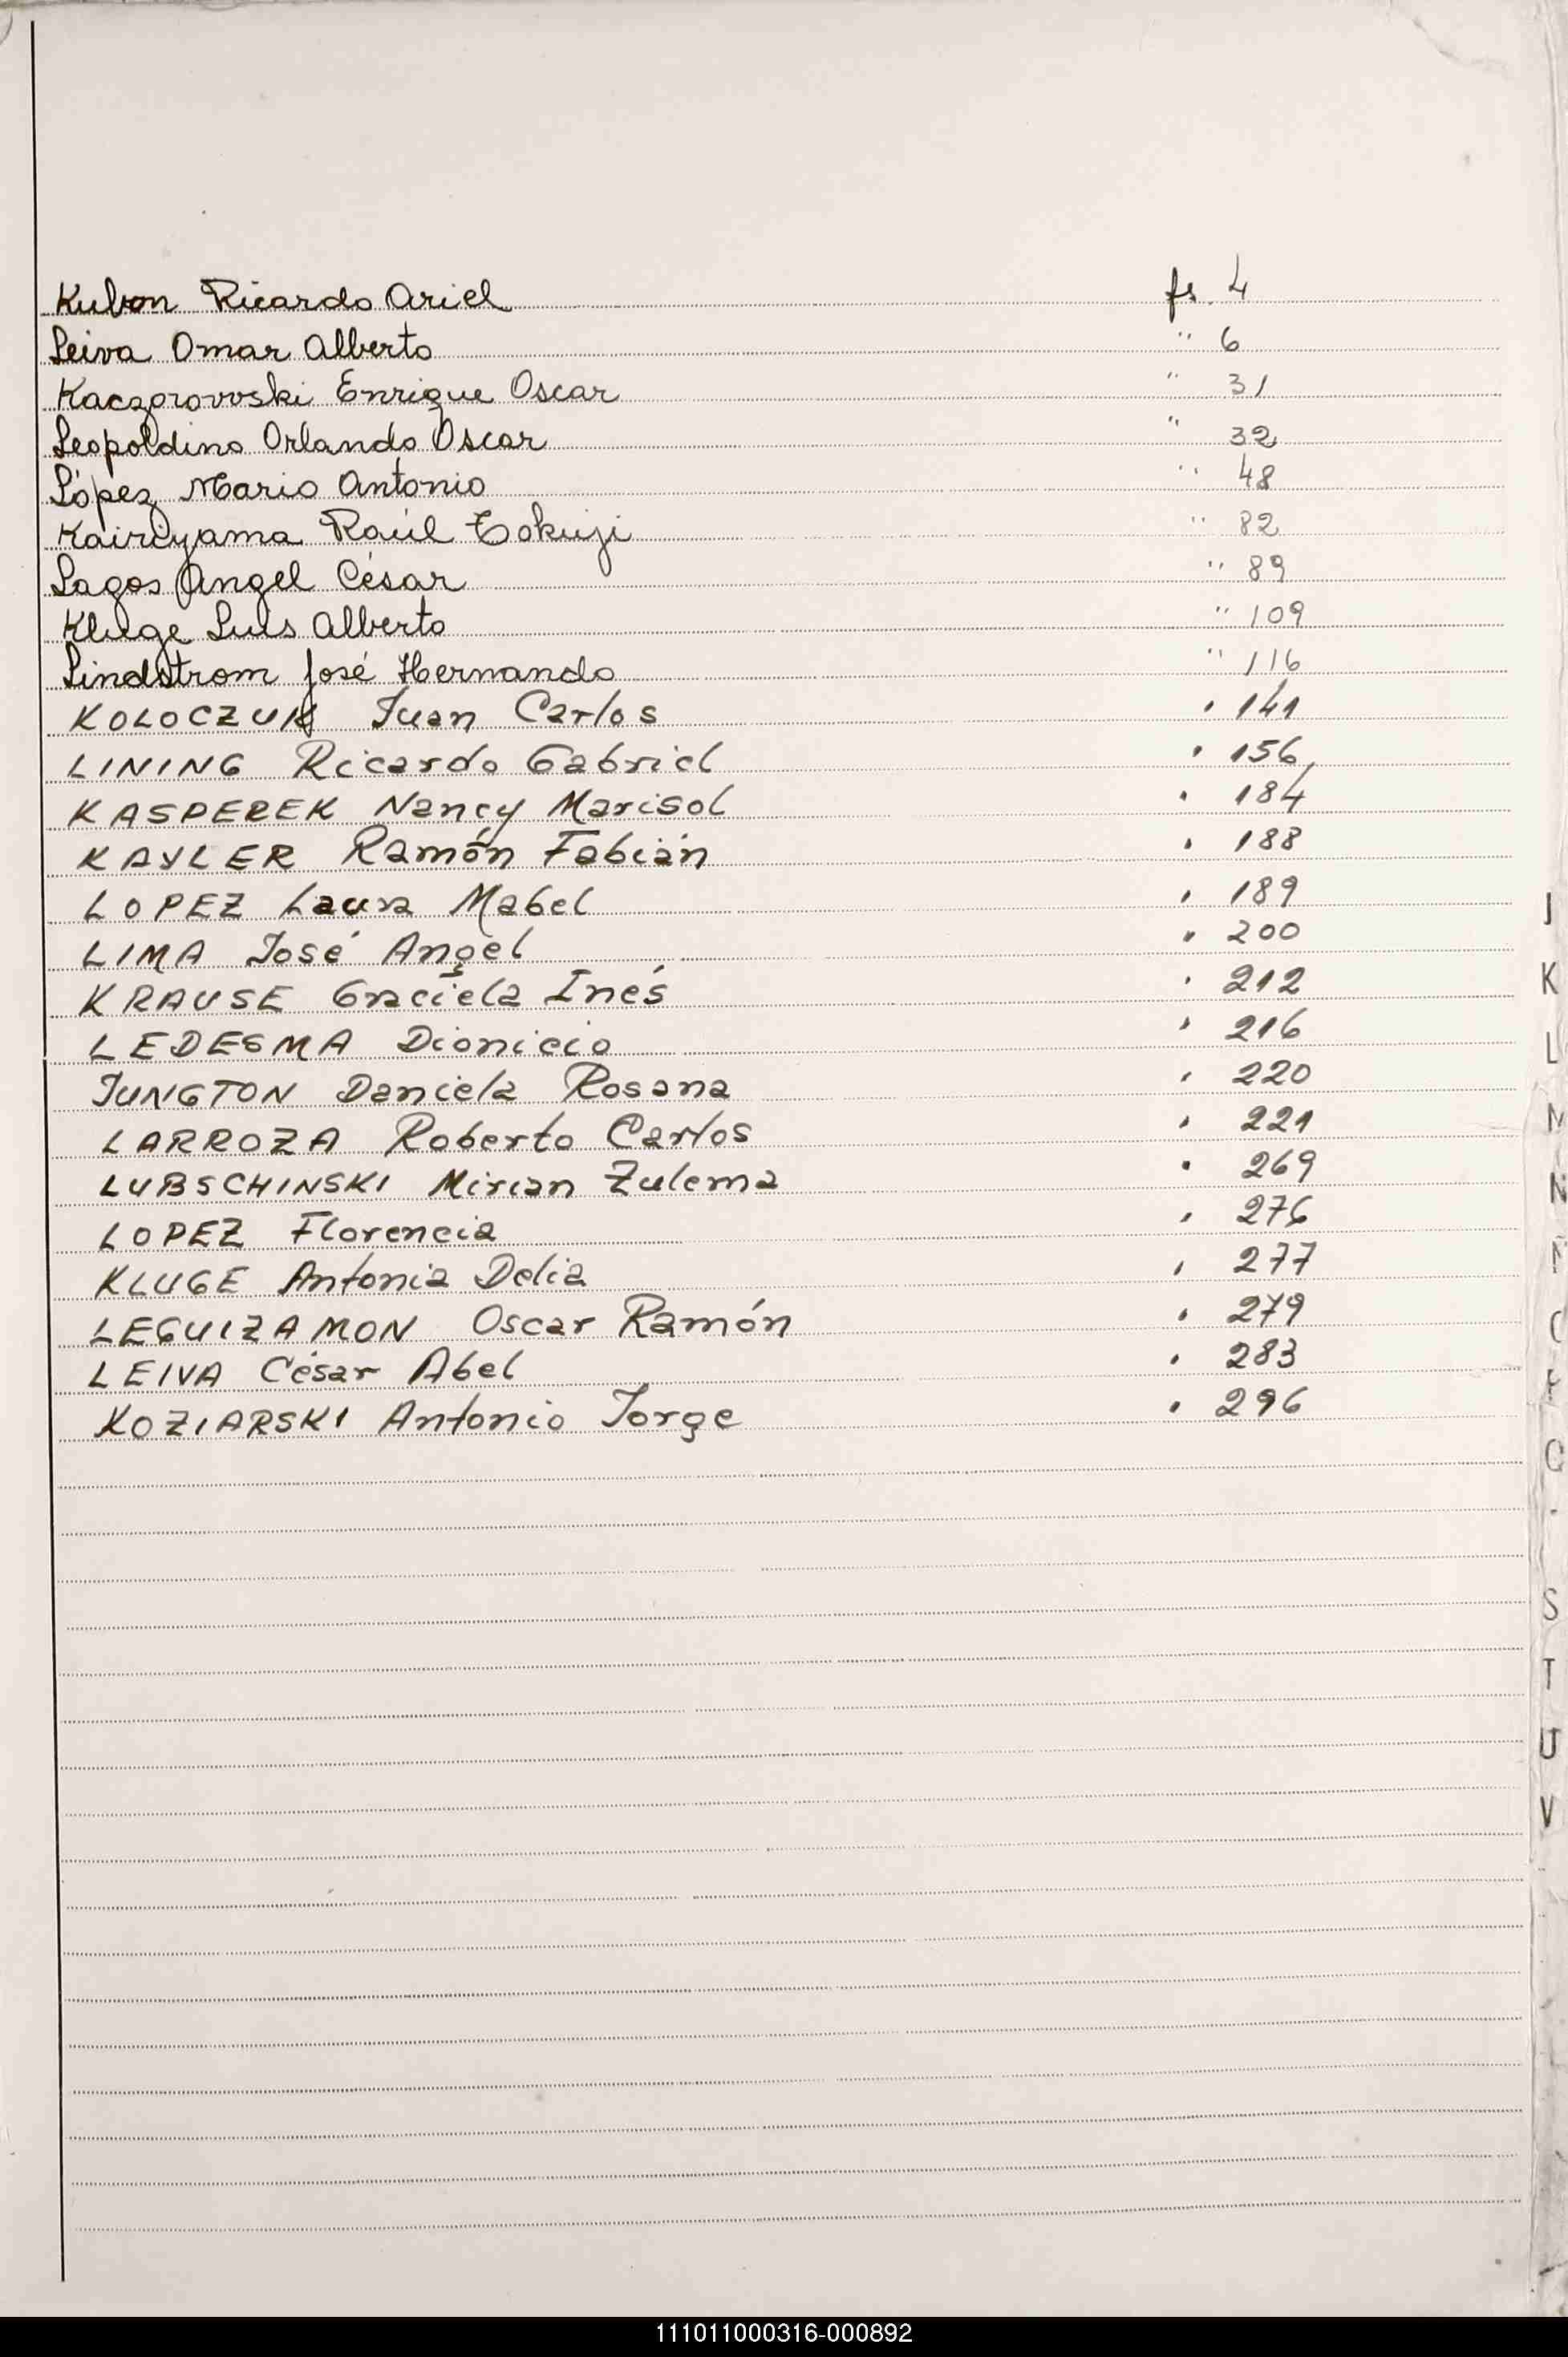 Kubon Ricardo Ariel fs. 4
Leiva Omar Alberto " 6
Kaczorowski Enrique Oscar " 31
Leopoldino Orlando Oscar " 32
López Mario Antonio " 48
Kaireyama Raúl Tokuji " 82
Lagos Angel César " 89
Kluge Luis Alberto " 109
Lindstrom José Hernando " 116
KOLOCZUK Juan Carlos " 141
LINING Ricardo Gabriel " 156
KASPEREK Nancy Marisol " 184
KAYLER Ramón Fabián " 188
LOPEZ Laura Mabel " 189
LIMA José Angel " 200
KRAUSE Graciela Inés " 212
LEDESMA Dionicio " 216
JUNGTON Daniela Rosana " 220
LARROZA Roberto Carlos " 221
LUBSCHINSKI Mirian Zulema " 269
LOPEZ Florencia " 276
KLUGE Antonia Delia " 277
LEGUIZAMON Oscar Ramón " 279
LEIVA César Abel " 283
KOZIARSKI Antonio Jorge " 296
J
K
L
M
N
S
T
U
V
111011000316-000892